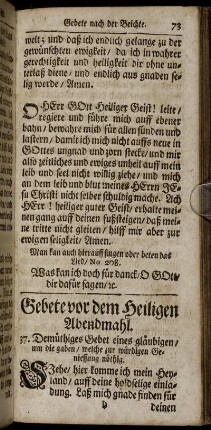 Gebete nach der Beichte. 73
welt; und daß ich endlich gelange zu der
gewünschten ewigkeit/ da ich in wahrer
gerechtigkeit und heiligkeit dir ohne un-
terlaß diene/ und endlich aus gnaden se-
lig werde/ Amen.
OHErr GOtt Heiliger Geist! leite/
regiere und führe mich auff ebener
bahn/ bewahre mich für allen sünden und
lastern/ damit ich mich nicht auffs neue in
GOttes ungnad und zorn stecke/ und mir
also zeitliches und ewiges unheil auff mein
leib und seel nicht willig ziehe/ und mich
an dem leib und blut meines HErrn JE-
su Christi nicht selber schuldig mache. Ach
HErr! heiliger guter Geist/ erhalte mei-
nen gang auff deinen fußsteigen/ daß mei-
ne tritte nicht gleiten/ hilff mir aber zur
ewigen seligkeit/ Amen.
Man kan auch hierauff singen oder beten das
Lied/ No. 208.
Was kan ich doch für danck/ O GOtt
dir dafür sagen/ ꝛc.
Gebete vor dem Heiligen
Abendmahl.
37. Demüthiges Gebet eines gläubigen/
um die gaben/ welche zur würdigen Ge-
niessung nöthig.
SJehe/ hier komme ich mein Hey-
land/ auff deine holdselige einla-
dung. Laß mich gnade finden für
deinen